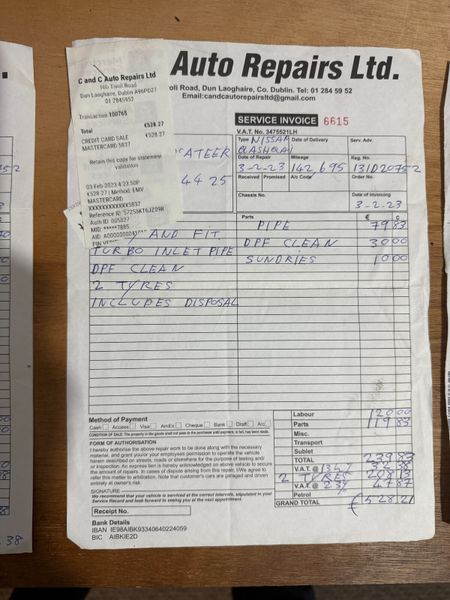 C and C Auto Repairs Ltd
14b Tivoli Road
Dun Laoghaire, Dublin A96PD27
01 2845952
Transaction 100765
Total €528.27
CREDIT CARD SALE €528.27
MASTERCARD 5837
Retain this copy for statement
validation
03 Feb 2023 4:23:50P
€528.27 | Method: EMV
MASTERCARD
XXXXXXXXXXXX5837
Auth ID: 005827
MID: *****7885
Auto Repairs Ltd.
oli Road, Dun Laoghaire, Co. Dublin. Tel: 01 284 59 52
Email:candcautorepairsltd@gmail.com
SERVICE INVOICE 6615
V.A.T. No. 3475521LH
Type NISSAN QASHQAI Date of Delivery Serv. Adv.
ATEER
Date of Repair 3-2-23 Mileage 142695 Reg. No. 131D20752
4425
Received Promised A/c Code Order No.
Chassis No. Date of Invoicing 3-2-23
Parts € c
AND FIT PIPE 79 83
TURBO INLET PIPE DPF CLEAN 30 00
DPF CLEAN SUNDRIES 10 00
2 TYRES
INCLUDES DISPOSAL
Method of Payment
Cash Access Visa AmEx Cheque Bank Draft A/c
CONDITION OF SALE: The property in the goods shall not pass to the purchaser until payment in full, has been made.
FORM OF AUTHORISATION
I hereby authorise the above repair work to be done along with the necessary
material, and grant you/or your employees permission to operate the vehicle
harein described on streets, roads or elsewhere for the purpose of testing and/
or inspection. An express lien is hereby acknowledged on above vehicle to secure
the amount of repairs. In cases of dispute arising from this repair. I/We agree to
refer this matter to arbitration. Note that customer's cars are garaged and driven
entirely at owner's risk.
SIGNATURE
We recommend that your vehicle is serviced at the correct intervals, stipulated in your
Service Record and look forward to seeing you at the appropriate time.
Receipt No.
Bank Details
IBAN IE98AIBK93340640224059
BIC AIBKIE2D
Labour 120 00
Parts 119 83
Misc.
Transport
Sublet
TOTAL 239 83
V.A.T @ 13½%
2 TYRES 208 13
V.A.T. @ 23% 47 87
Petrol
GRAND TOTAL €528 21
.38